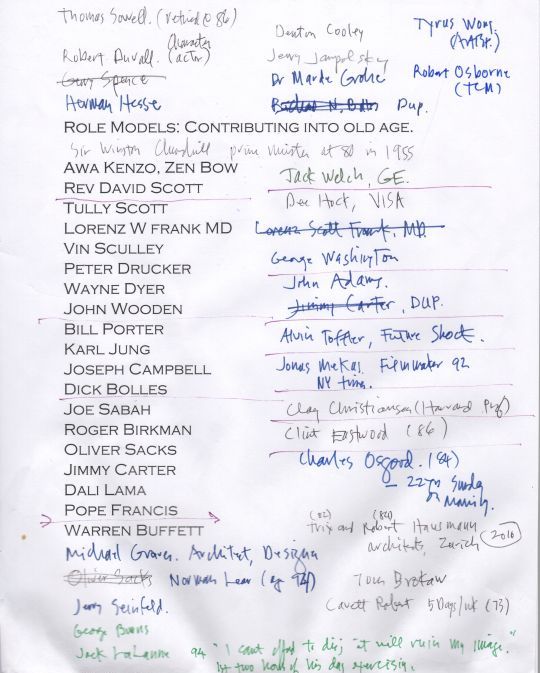 Thomas Sowell. (retired @ 86)
Denton Cooley
Tyrus Wong
Robert Duvall. (Character actor)
Jerry Jampolsky
Robert Osborne
(TCM)
Gerry Spence
Dr
Herman Hesse
Dup.
ROLE MODELS: CONTRIBUTING INTO OLD AGE.
Sir Winston Churchill prime minister at 80 in 1955
AWA KENZO, ZEN BOW
Jack Welch, GE.
REV DAVID SCOTT
Dee Hock, VISA
TULLY SCOTT
LORENZ W FRANK MD
Lorenz Scott Frank, MD.
VIN SCULLEY
George Washington
PETER DRUCKER
John Adams.
WAYNE DYER
Jimmy Carter, DUP.
JOHN WOODEN
BILL PORTER
Alvin Toffler, Future Shock.
KARL JUNG
Jonas Mekas. Filmmaker 92
JOSEPH CAMPBELL
NY times.
DICK BOLLES
JOE SABAH
Clay Christiansen (Harvard Prof)
ROGER BIRKMAN
Clint Eastwood (86)
OLIVER SACKS
Charles Osgood. (84)
JIMMY CARTER
– 22 yrs Sunday
DALI LAMA
Morning.
POPE FRANCIS
(82) (84)
Trix and Robert Hausmann
WARREN BUFFETT
architects, Zurich 2016
Michael Graves. Architect, Designer
Oliver Sacks Norman Lear (age 94)
Tom Brokaw
Jerry Seinfeld.
Cavett Robert 5 Days/wk (73)
George Burns
Jack LaLanne 94 "I cant afford to die, it will ruin my image."
1st two hours of his day exercising.